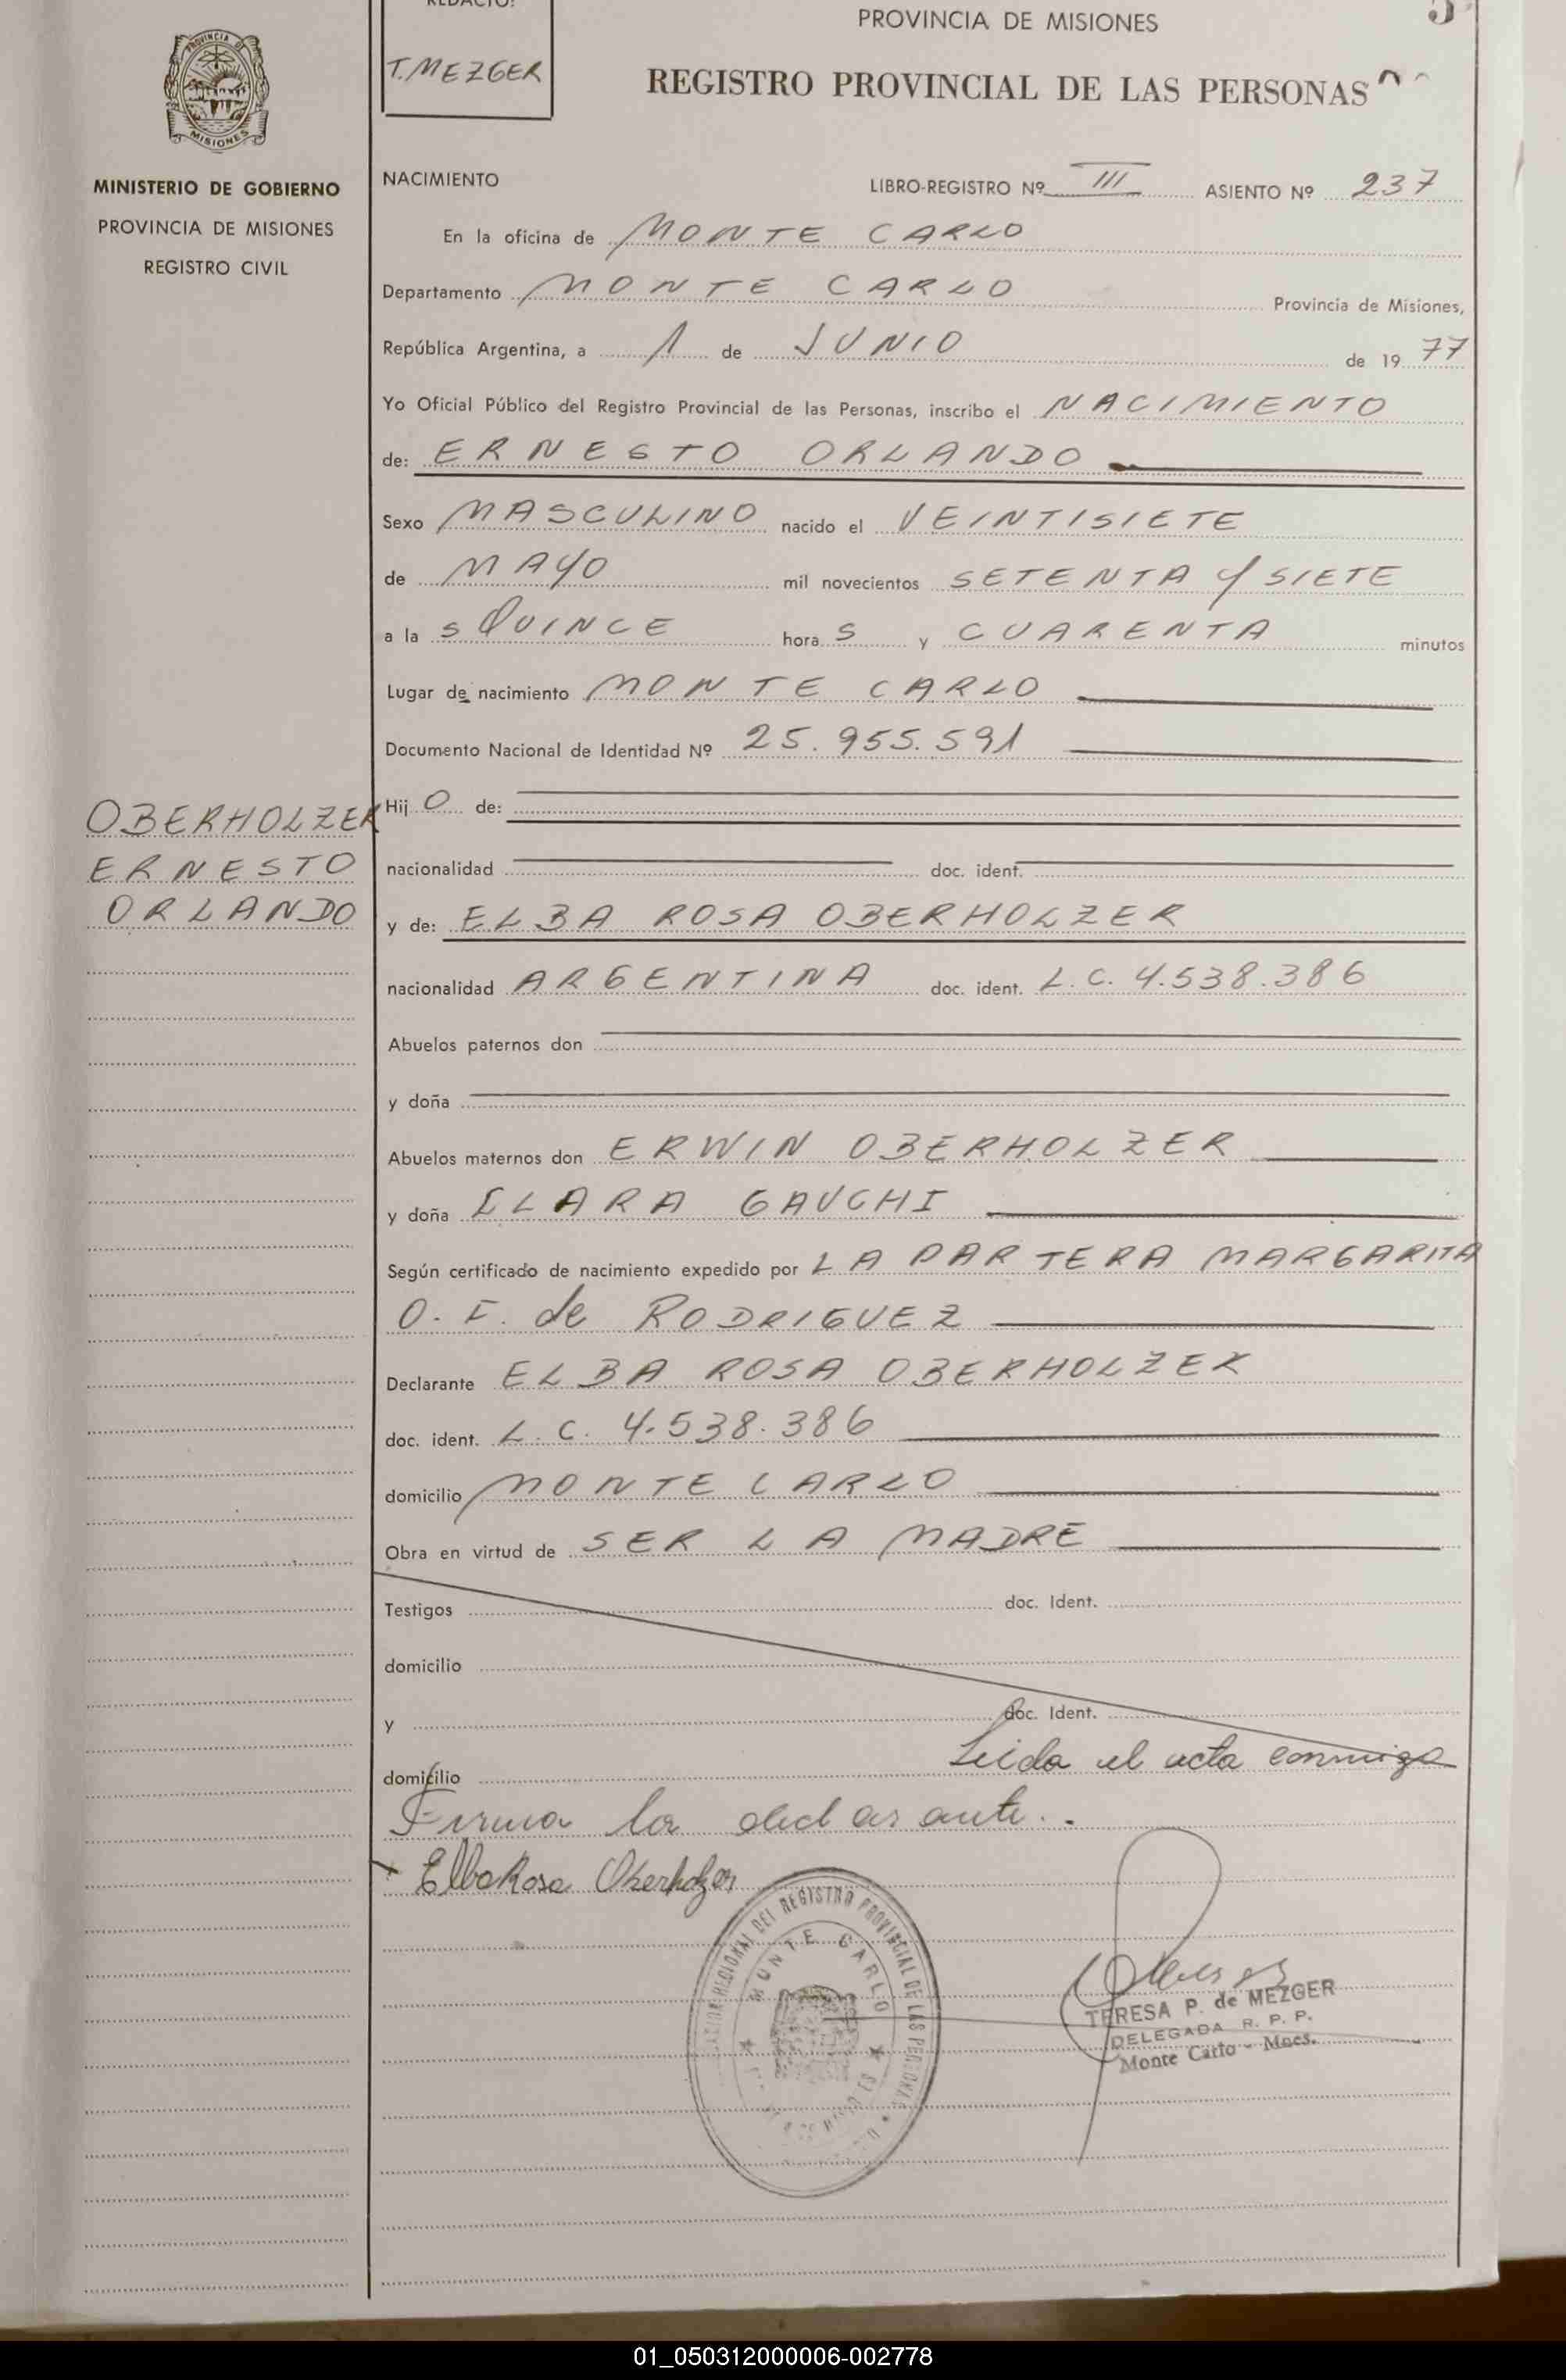 REDACTO:
T. MEZGER
PROVINCIA DE MISIONES
REGISTRO PROVINCIAL DE LAS PERSONAS
PROVINCIA DE
MISIONES
MINISTERIO DE GOBIERNO
PROVINCIA DE MISIONES
REGISTRO CIVIL
NACIMIENTO LIBRO-REGISTRO Nº III ASIENTO Nº 237
En la oficina de MONTE CARLO
Departamento MONTE CARLO Provincia de Misiones,
República Argentina, a 1 de JUNIO de 19 77
Yo Oficial Público del Registro Provincial de las Personas, inscribo el NACIMIENTO
de: ERNESTO ORLANDO
Sexo MASCULINO nacido el VEINTISIETE
de MAYO mil novecientos SETENTA Y SIETE
a la s QUINCE hora s y CUARENTA minutos
Lugar de nacimiento MONTE CARLO
Documento Nacional de Identidad Nº 25.955.591
OBERHOLZER
ERNESTO
ORLANDO
Hij O de:
nacionalidad doc. ident.
y de: ELBA ROSA OBERHOLZER
nacionalidad ARGENTINA doc. ident. L.C. 4.538.386
Abuelos paternos don
y doña
Abuelos maternos don ERWIN OBERHOLZER
y doña CLARA GAUCHI
Según certificado de nacimiento expedido por LA PARTERA MARGARITA
O. F. de RODRIGUEZ
Declarante ELBA ROSA OBERHOLZER
doc. ident. L.C. 4.538.386
domicilio MONTE CARLO
Obra en virtud de SER LA MADRE
Testigos doc. Ident.
domicilio
y doc. Ident.
domicilio Leida el acta conmigo
Firma la declarante.
Elba Rosa Oberholzer
REGIONAL DEL REGISTRO PROVINCIAL DE LAS PERSONAS
MONTE CARLO
TERESA P. de MEZGER
DELEGADA R. P. P.
Monte Carlo - Mnes.
01_050312000006-002778